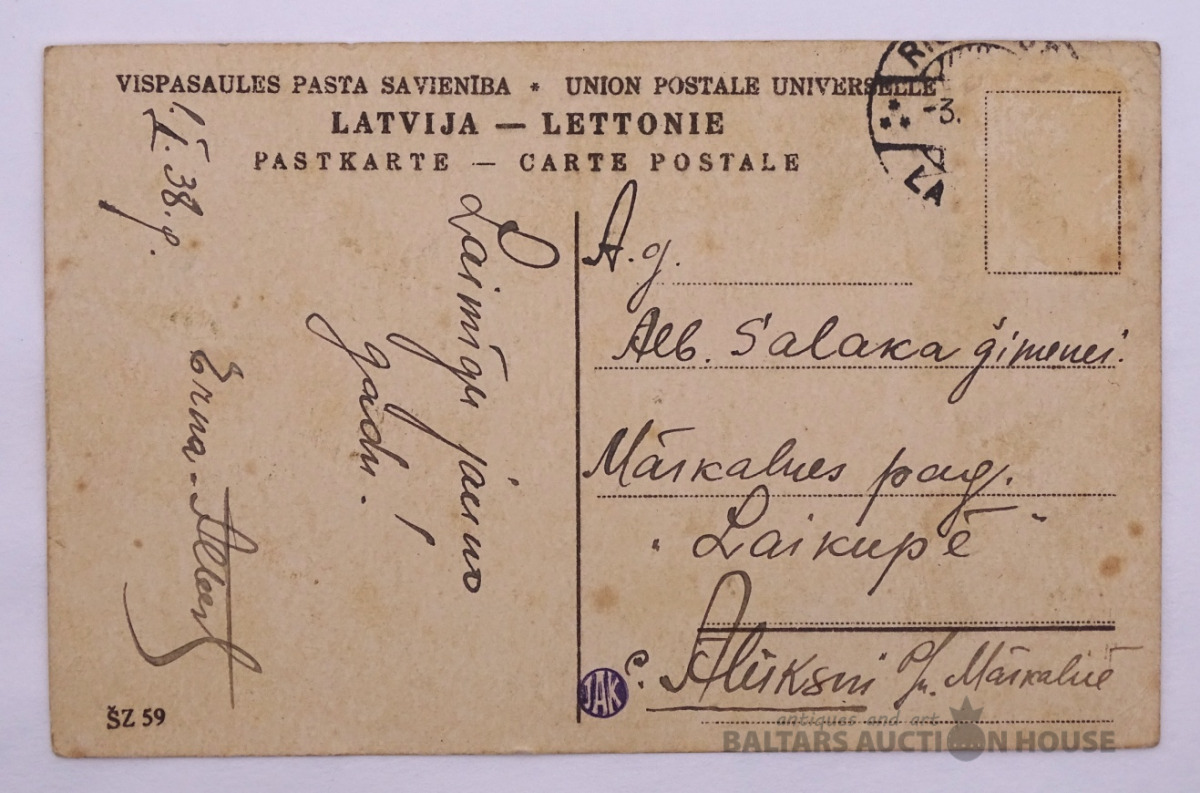 VISPASAULES PASTA SAVIENĪBA * UNION POSTALE UNIVERSELLE
LATVIJA — LETTONIE
PASTKARTE — CARTE POSTALE
-3.
LA
1. I. 38. g.
Laimīgu jauno
gadu!
Erna-Albert
A. g.
Alb. Salaka ģimenei.
Mārkalnes pag.
"Laikupē"
c. Alūksni p/n. Mārkalnē
JAK
ŠZ 59
antiques and art
BALTARS AUCTION HOUSE